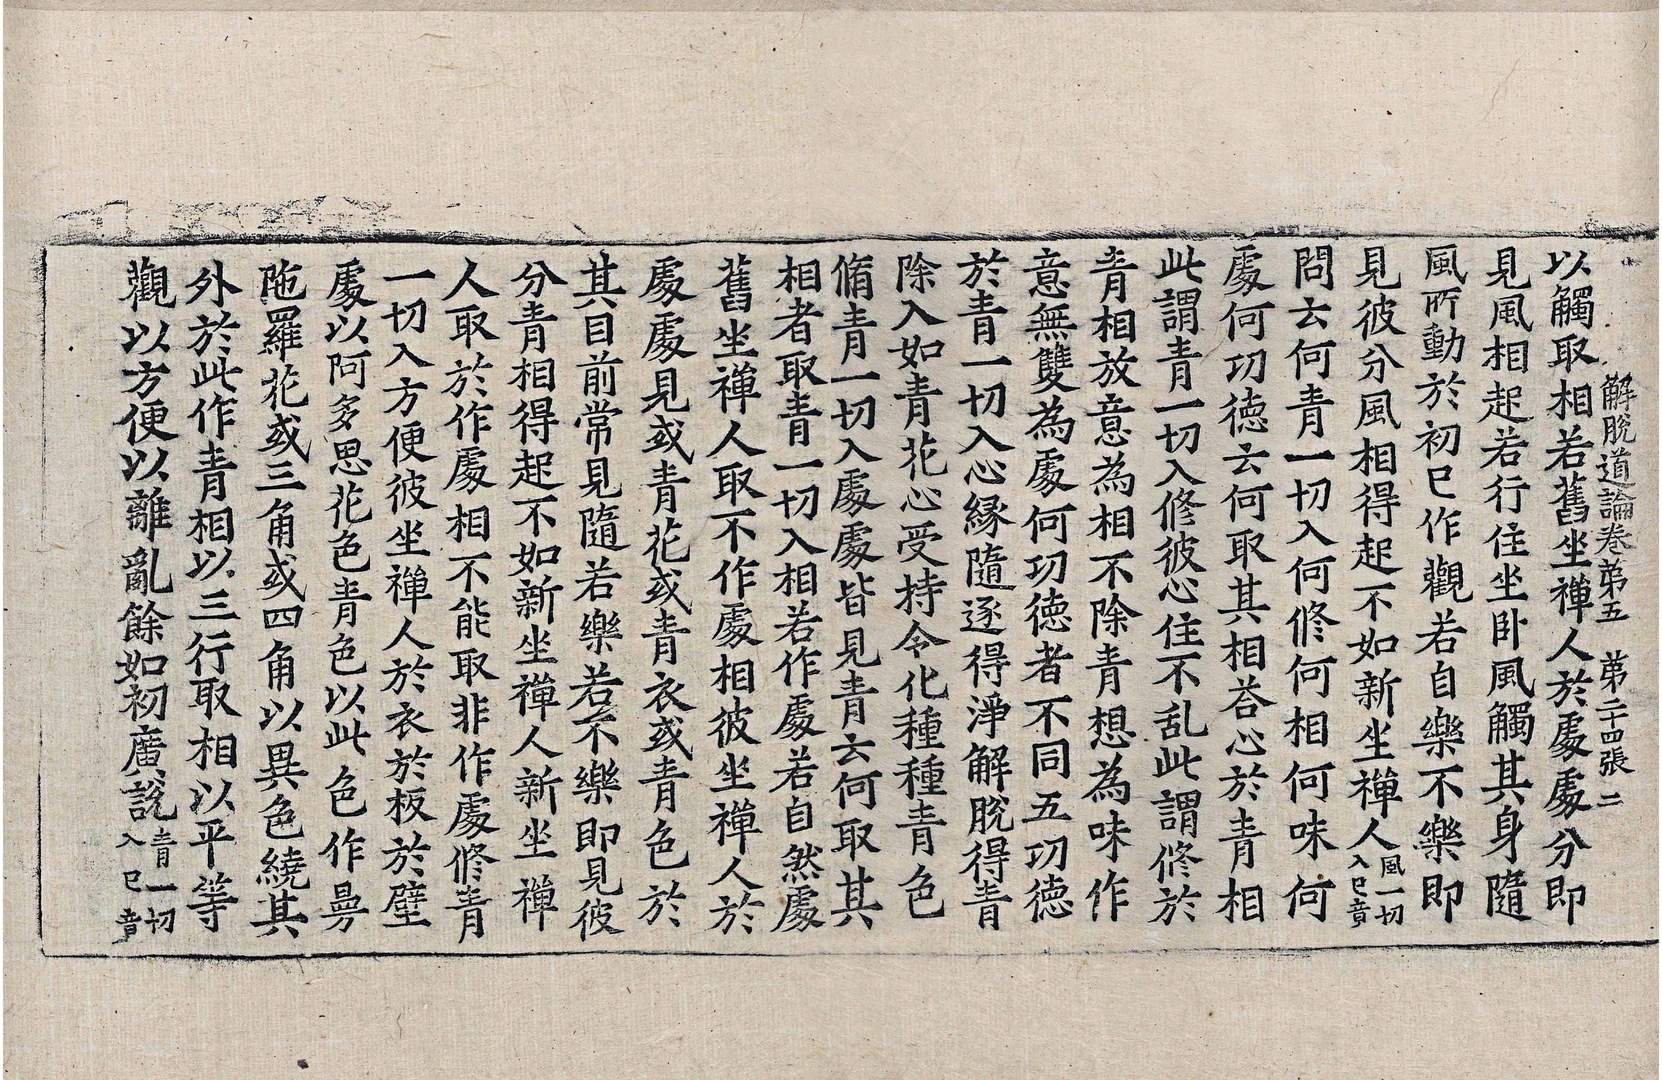 解脫道論卷第五　第二十四張　二
以觸取相若舊坐禪人於處處分即
見風相起若行住坐卧風觸其身隨
風所動於初已作觀若自樂不樂即
見彼分風相得起不如新坐禪人風一切入已竟
問云何青一切入何修何相何味何
處何功德云何取其相荅心於青相
此謂青一切入修彼心住不乱此謂修於
青相放意為相不除青想為味作
意無雙為處何功德者不同五功德
於青一切入心緣隨逐得淨解脫得青
除入如青花心受持令化種種青色
脩青一切入處處皆見青云何取其
相者取青一切入相若作處若自然處
舊坐禪人取不作處相彼坐禪人於
處處見或青花或青衣或青色於
其目前常見隨若樂若不樂即見彼
分青相得起不如新坐禪人新坐禪
人取於作處相不能取非作處修青
一切入方便彼坐禪人於衣於板於壁
處以阿多思花色青色以此色作㬅
陁羅花或三角或四角以異色繞其
外於此作青相以三行取相以平等
觀以方便以離亂餘如初廣說青一切入已竟